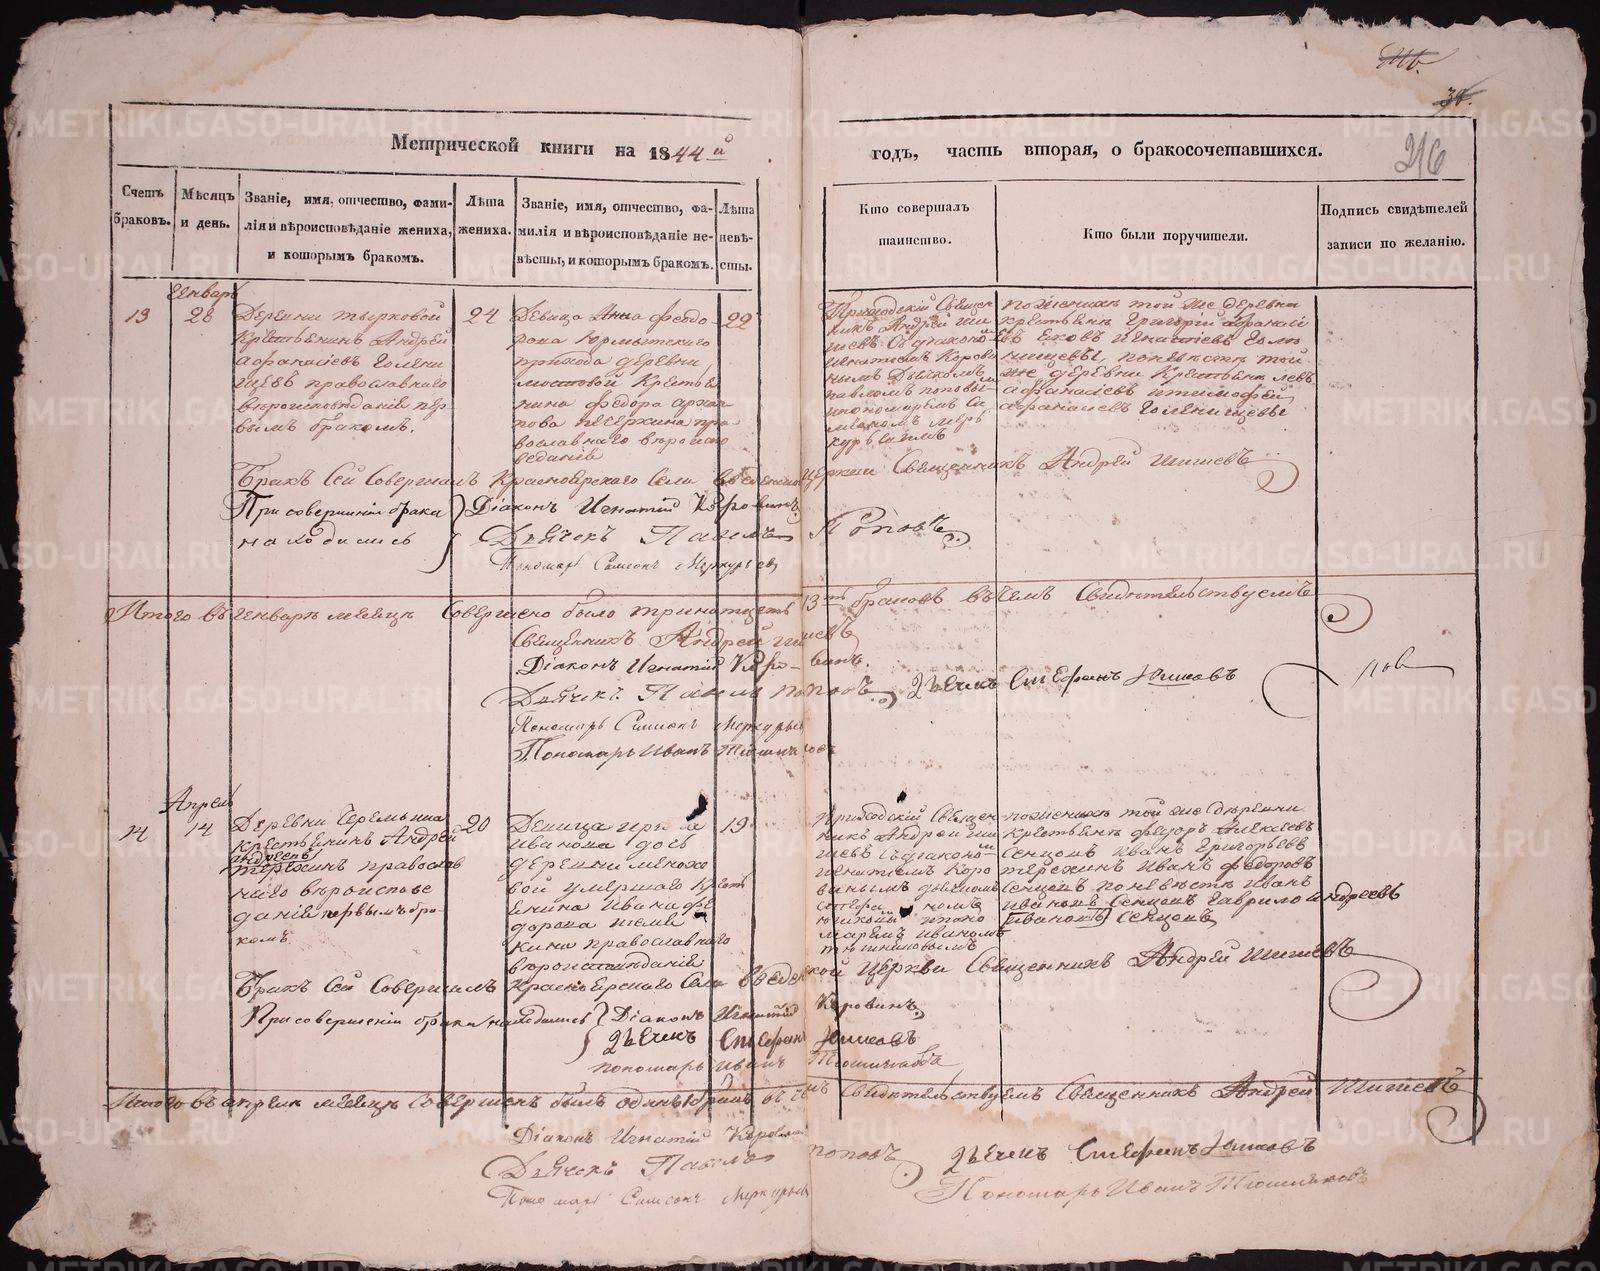 216
Метрической книги на 1844й
годъ, часть вторая, о бракосочетавшихся.
Счетъ браковъ.
Мѣсяцъ и день.
Званіе, имя, отчество, фами-
лія и вѣроисповѣданіе жениха,
и которымъ бракомъ.
Лѣта
жениха.
Званіе, имя, отчество, фа-
милія и вѣроисповѣданіе не-
вѣсты, и которымъ бракомъ.
Лѣта
невѣ-
сты.
Кто совершалъ
таинство.
Кто были поручители.
Подпись свидѣтелей
записи по желанію.
13
Генварь
28
Деревни Тырковой
Крестьянинъ Андрей
Афанасіевъ Голени
щевъ православнаго
вѣроисповѣданія пер
вымъ бракомъ.
24
Девица Анна Федо-
рова
прихода деревни
Мостовой Крестья
нина Федора
православнаго вѣроиспо
веданія
22
Приходскій Священ
никъ Андрей Ши
шевъ съ діакономъ
Игнатіемъ Корови
нымъ Дьячкомъ
Павломъ Поповы
пономаремъ Си
меономъ Мерь
курьевымъ
по женихѣ той же деревни
крестьяне Григорій Афанасі
евъ Игнатіевъ Голе
нищевы, по невѣстѣ той
же деревни Крестьяне Левъ
Афанасіевъ и Тимофей
Афанасіевъ Голенищевы
Бракъ сей совершалъ Красноярскаго села Введенской церкви Священникъ Андрей Шишевъ
При совершеніи брака находились
Діаконъ Игнатій Коровинъ.
Дьячекъ Павелъ Поповъ
Пономарь Симеонъ Меркурьевъ
Итого въ генварѣ месецѣ совершено было тринатцеть 13ть браковъ въ чемъ свидѣтельствуемъ
Священникъ Андрей Шишевъ
Діаконъ Игнатій Коровинъ.
Дьячекъ Павелъ Поповъ Дьечекъ Стефанъ Юшковъ
Пономарь Симеонъ Меркурьевъ
Пономарь Иванъ Тюшняковъ
14
Апрель
14
Деревни
крестьянинъ Андрей
Андреевъ
Терехинъ православ
наго вѣроиспове
данія первымъ бра-
комъ.
20
Девица
Иванова дочь
деревни
умершаго крест
янина Ивана Фе
дорова
православнаго
вѣроисповѣданія
19
Приходскій Священ
никъ Андрей Ши
шевъ съ діакономъ
Игнатіемъ Коро
винымъ дьячкомъ
Стефаномъ
Юшковымъ и поно
маремъ Иваномъ
Тюшняковымъ
по женихѣ той же деревни
крестьяне Федоръ Алексеевъ
Сенцовъ Иванъ Григорьевъ
Терехинъ Иванъ Федоровъ
Сенцовъ по невѣстѣ Иванъ
Ивановъ Сенцовъ Гаврило Андреевъ
Ивановъ Сенцовъ
Бракъ сей совершалъ Красноярскаго села Введенской церкви Священникъ Андрей Шишевъ
При совершеніи брака находились
Діаконъ Игнатій Коровинъ.
Дьечекъ Стефанъ Юшковъ
пономарь Иванъ Тюшняковъ
Итого въ апреле месецѣ совершенъ былъ одинъ бракъ въ чемъ свидѣтельствуемъ Священникъ Андрей Шишевъ
Діаконъ Игнатій Коровинъ
Дьячекъ Павелъ Поповъ Дьечекъ Стефанъ Юшковъ
Пономарь Симеонъ Меркурьевъ Пономарь Иванъ Тюшняковъ
METRIKI.GASO-URAL.RU